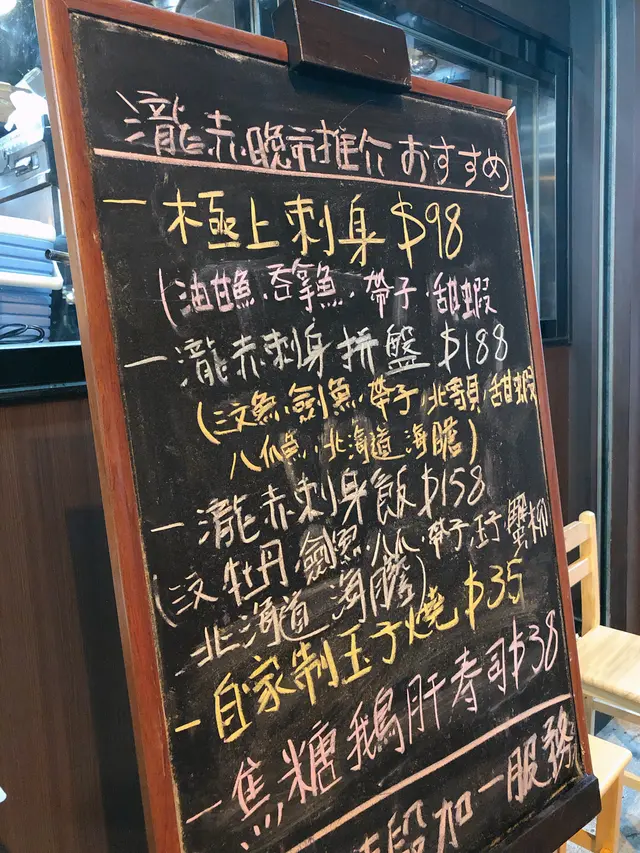 瀧赤晚市推介 おすすめ
一極上刺身 $98
(油甘魚.吞拿魚.帶子.甜蝦
一瀧赤刺身拼盤 $188
(三文魚.劍魚.帶子.北寄貝.甜蝦
八爪魚.北海道海膽)
一瀧赤刺身飯 $158
(三文 牡丹 劍魚 帶子 玉子 蟹柳
北海道海膽)
一自家制玉子燒 $35
一焦糖鵝肝寿司 $38
段加一服務